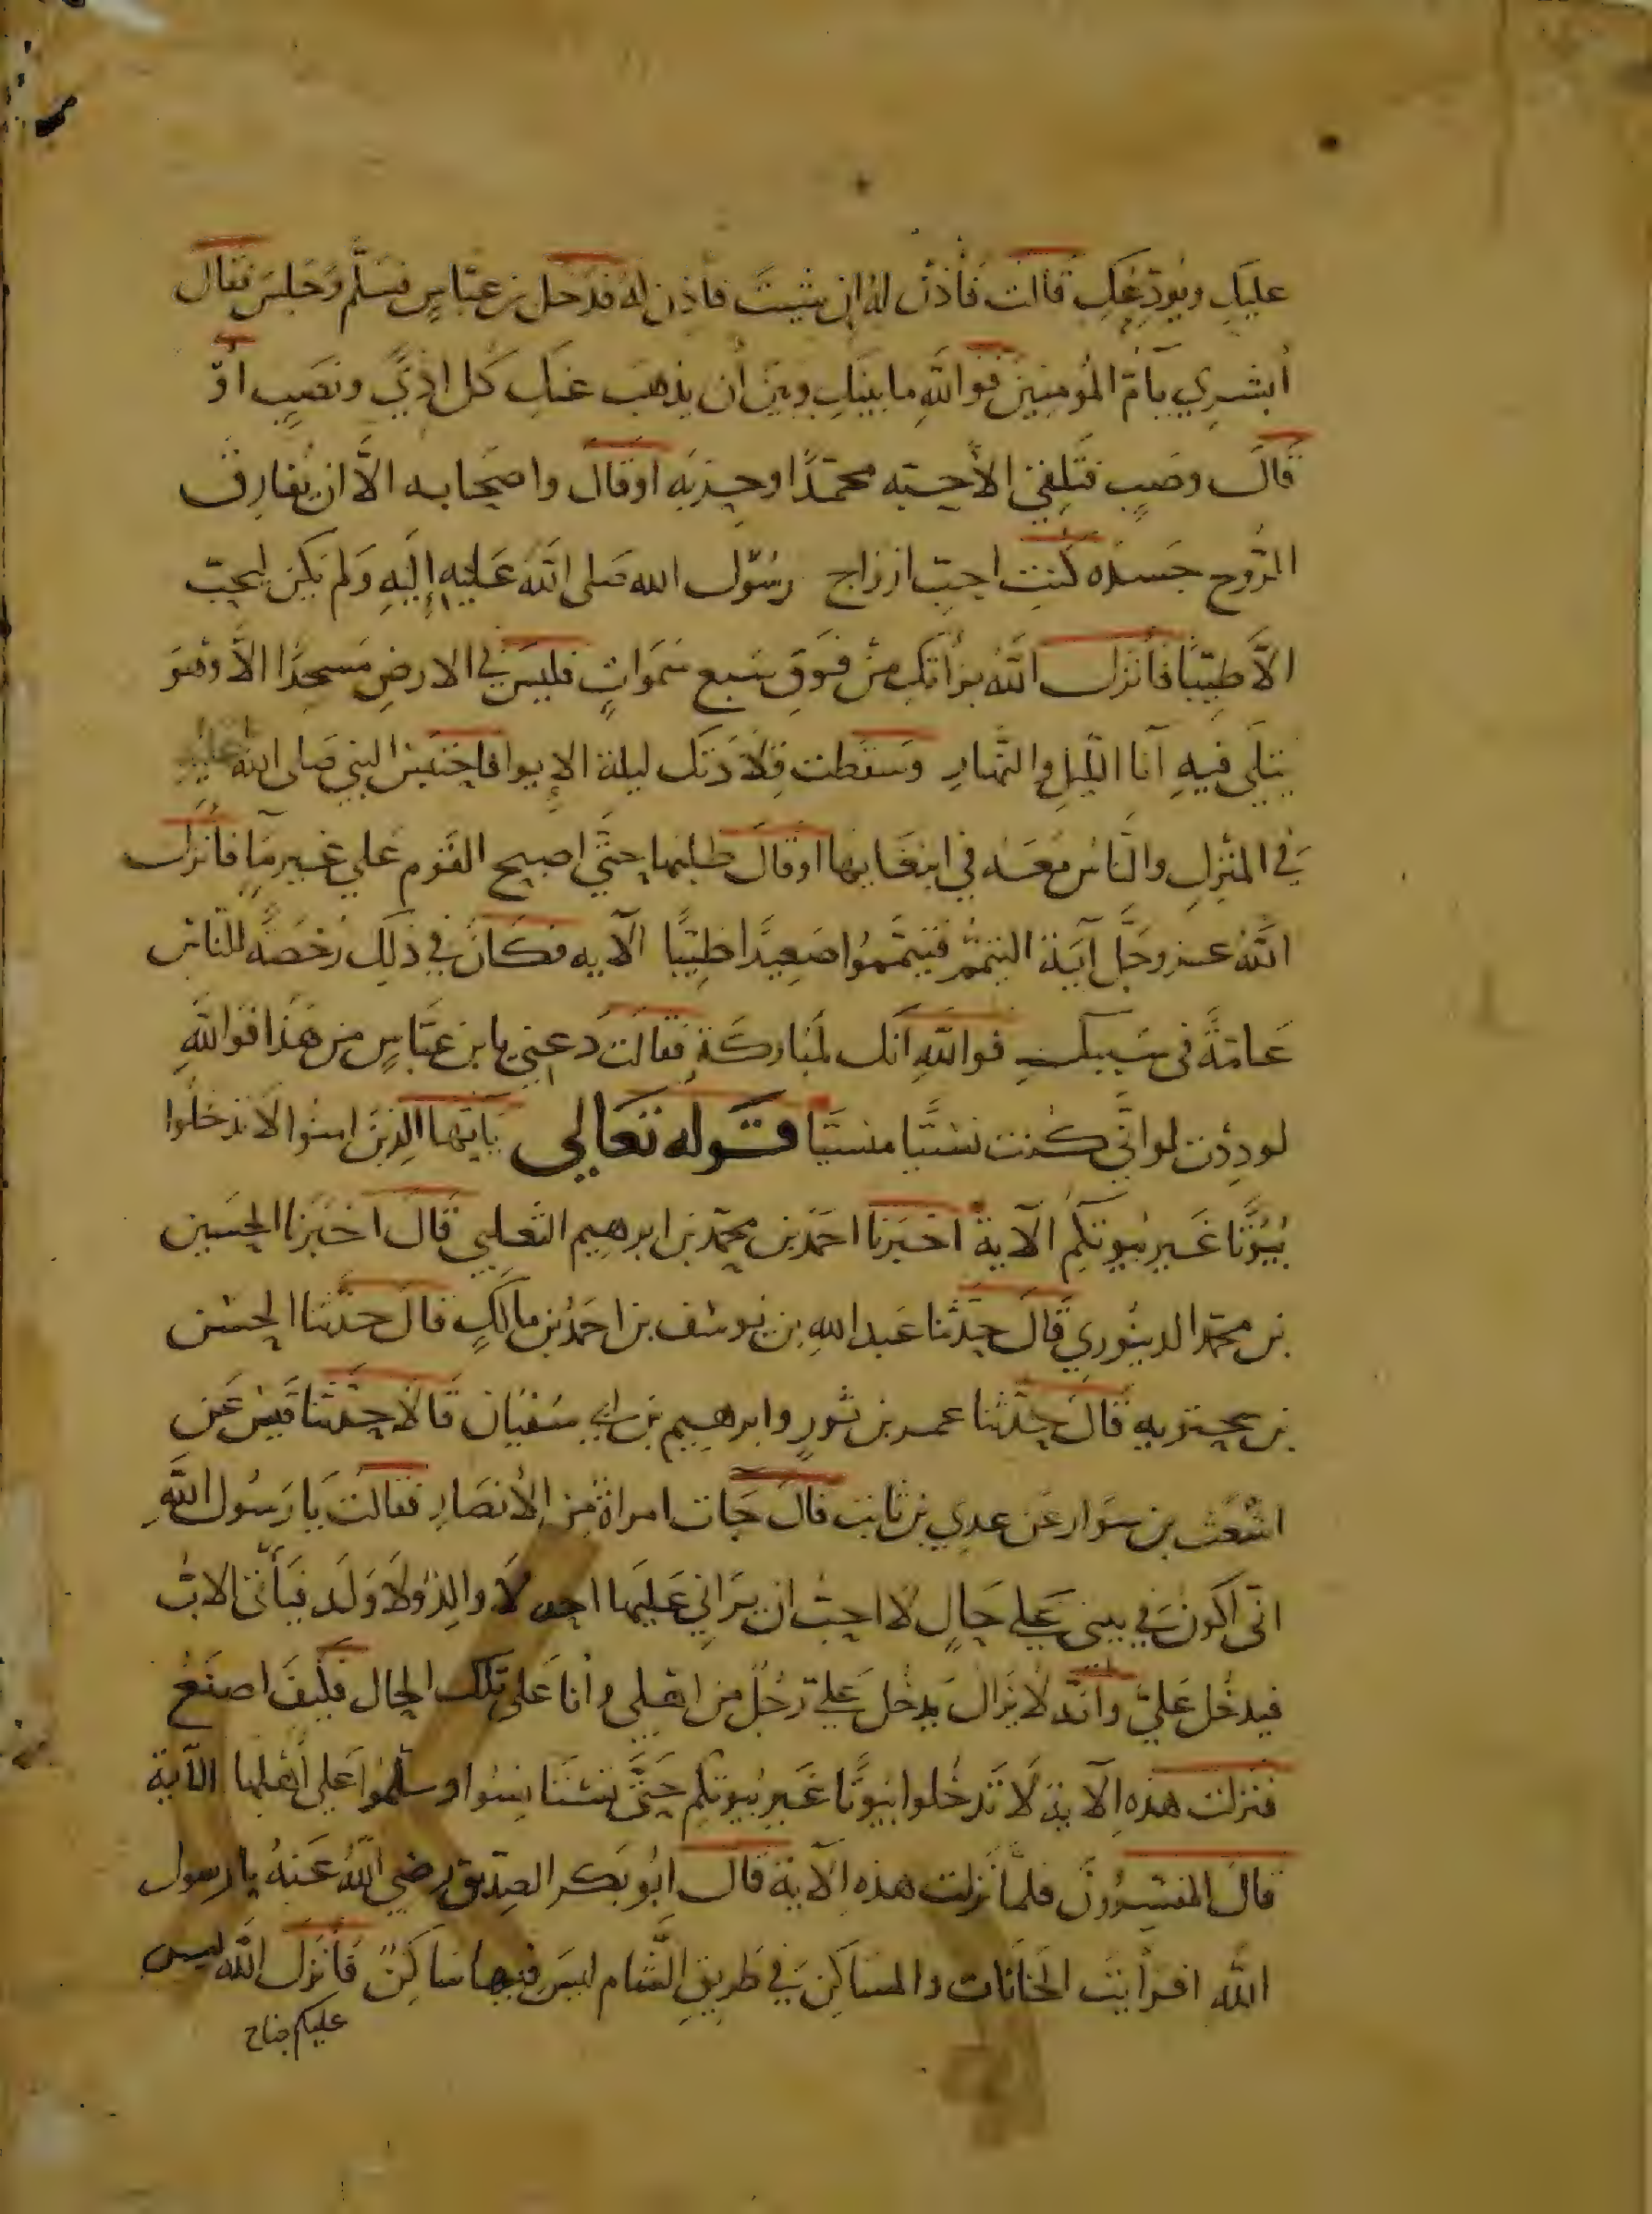 عليكِ ويُودِّعُكِ قالت فأذن له إن شيت فاذن له فدخل بن عباسٍ فسلّم وجلس فقال
أبشري يأمّ المُومنين فواللهِ ما بينكِ وبين أن يذهب عنكِ كل اذيً ونصبٍ اوّ
قال وصبٍ فتلقى الأحبه محمدًا وحزبَه او قال واصحابه الاّ ان يُفارق
الرُّوح جسده كنتِ احبّ ازواج رسُول الله صلى الله عليه إليه ولم يكن يحبّ
الاَّ طيّبًا فأنزل الله براتكِ من فوق سبع سَموَاتٍ فليس في الارضِ مسجدًا الاَّ وهو
يتلَى فيهِ آنا الليلِ والنهارِ وسقطت قلادتك ليلة الابوا فاحتبس النبي صلى الله عليه
في المنزلِ والناس معه في ابتغايها او قال طلبها حتَّى اصبح القوم على غير مآٍ فأنزل
الله عز وجلّ آية التيمُّم فتيمَّموُا صعيدًا طيّبًا الآيه فكان في ذلك رُخصةً للناس
عامةً في سببكِ فواللهِ انك لمُباركة فقالت دعني يابن عبّاسٍ من هذا فواللهِ
لوددت لو انّي كنت نسيًّا منسيًّا قوله تعالي يآيّها الذين امنوا لا تدخُلوا
بُيُوتًا غير بيوتكم الآية اخبرنا احمد بن محمد بن ابرهيم الثعلبي قال اخبرنا الحسين
بن محمد الدينوري قال حدثنا عبد اللهِ بن يُوسف بن احمد بن مالكٍ قال حدثنا الحسن
بن بحتويه قال حدثنا عمر بن ثورٍ وابرهيم بن ابي سفيان قالا حدثنا قيس عن
اشعث بن سوّار عن عدي بن ثابت قال جات امراة من الأنصارِ فقالت يا رسُول اللهِ
انى اكون في بيتي على حالٍ لا احبّ ان يراني عليها احد لا والدٌ ولا ولد فيأتى الاب
فيدخُل عليّ وانه لا يزال يدخل عليّ رجُلٌ من اهلي وأنا على تلك الحال فكيف اصنع
فنزلت هذه الآية لا تدخُلوا بيوتًا غير بيوتكم حتّى تستأنسُوا وسلّموا على أهلها الآية
قال المفسّرُون فلمّا نزلت هذه الآية قال ابُو بكر الصديق رضي الله عنهُ يا رسول
الله افرأيت الخانات والمساكن في طريق الشام ليس فيها ساكن فأنزل الله ليس
عليكم جناح